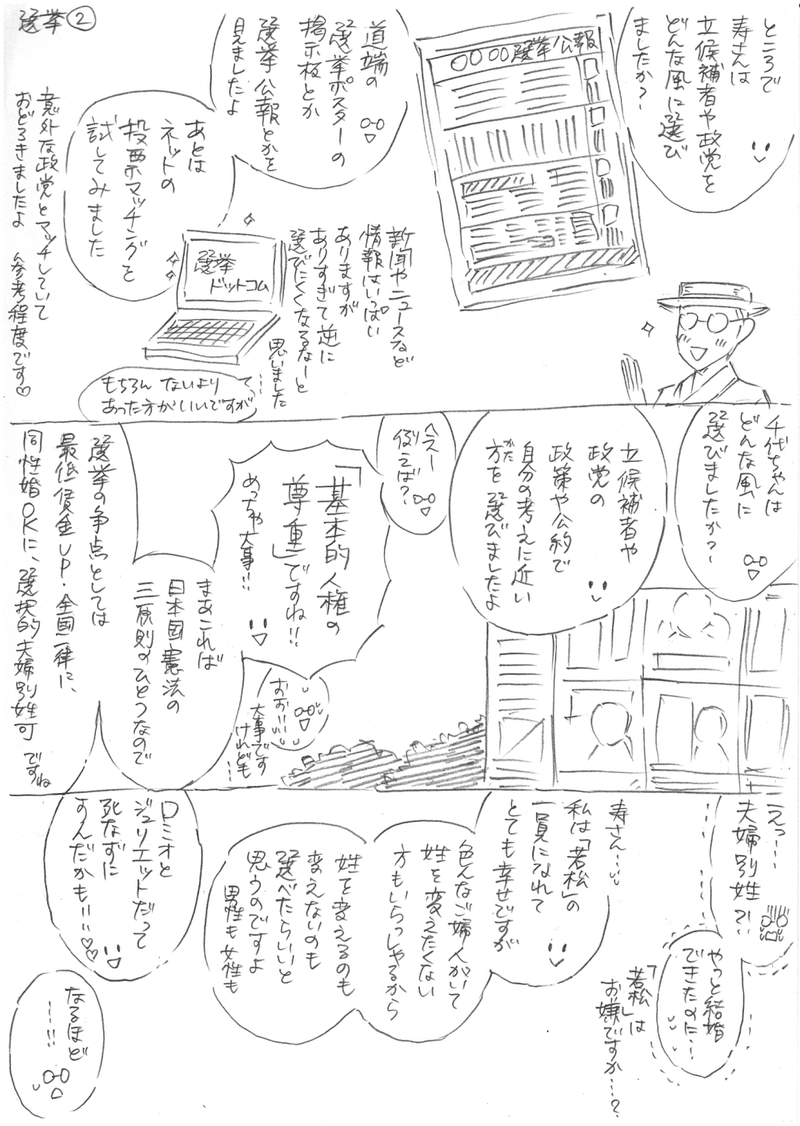 選挙②
ところで
寿さんは
立候補者や政党を
どんな風に選び
ましたか？
〇〇〇〇選挙公報
道端の
選挙ポスターの
掲示板とか
選挙公報とかを
見ましたよ
あとは
ネットの
投票マッチングを
試してみました
選挙
ドットコム
意外な政党とマッチしていて
おどろきましたよ
参考程度です♡
新聞やニュースなど
情報はいっぱい
ありますが
ありすぎて逆に
選びたくなるなーと
思いました
もちろんないより
あった方がいいですが
て…
千代ちゃんは
どんな風に
選びましたか？
立候補者や
政党の
政策や公約で
自分の考えに近い
方を選びましたよ
がた
へえー
例えば？
「基本的人権の
尊重」ですね!!
めっちゃ大事!!
おお…!!
大事です
けれども…
まあこれは
日本国憲法の
三原則のひとつなので
選挙の争点としては
最低賃金UP・全国一律に、
同性婚OKに、選択的夫婦別姓可
ですね
えっ…
夫婦別姓?!
やっと結婚
できたのに…
「若松」は
お嫌ですか…？
寿さん…
私は「若松」の
一員になれて
とても幸せですが
色んなご婦人がいて
姓を変えたくない
方もいらっしゃるから
姓を変えるのも
変えないのも
選べたらいいと
思うのですよ
男性も女性も
ロミオと
ジュリエットだって
死なずに
すんだかも!!♡♡
なるほど
…!!